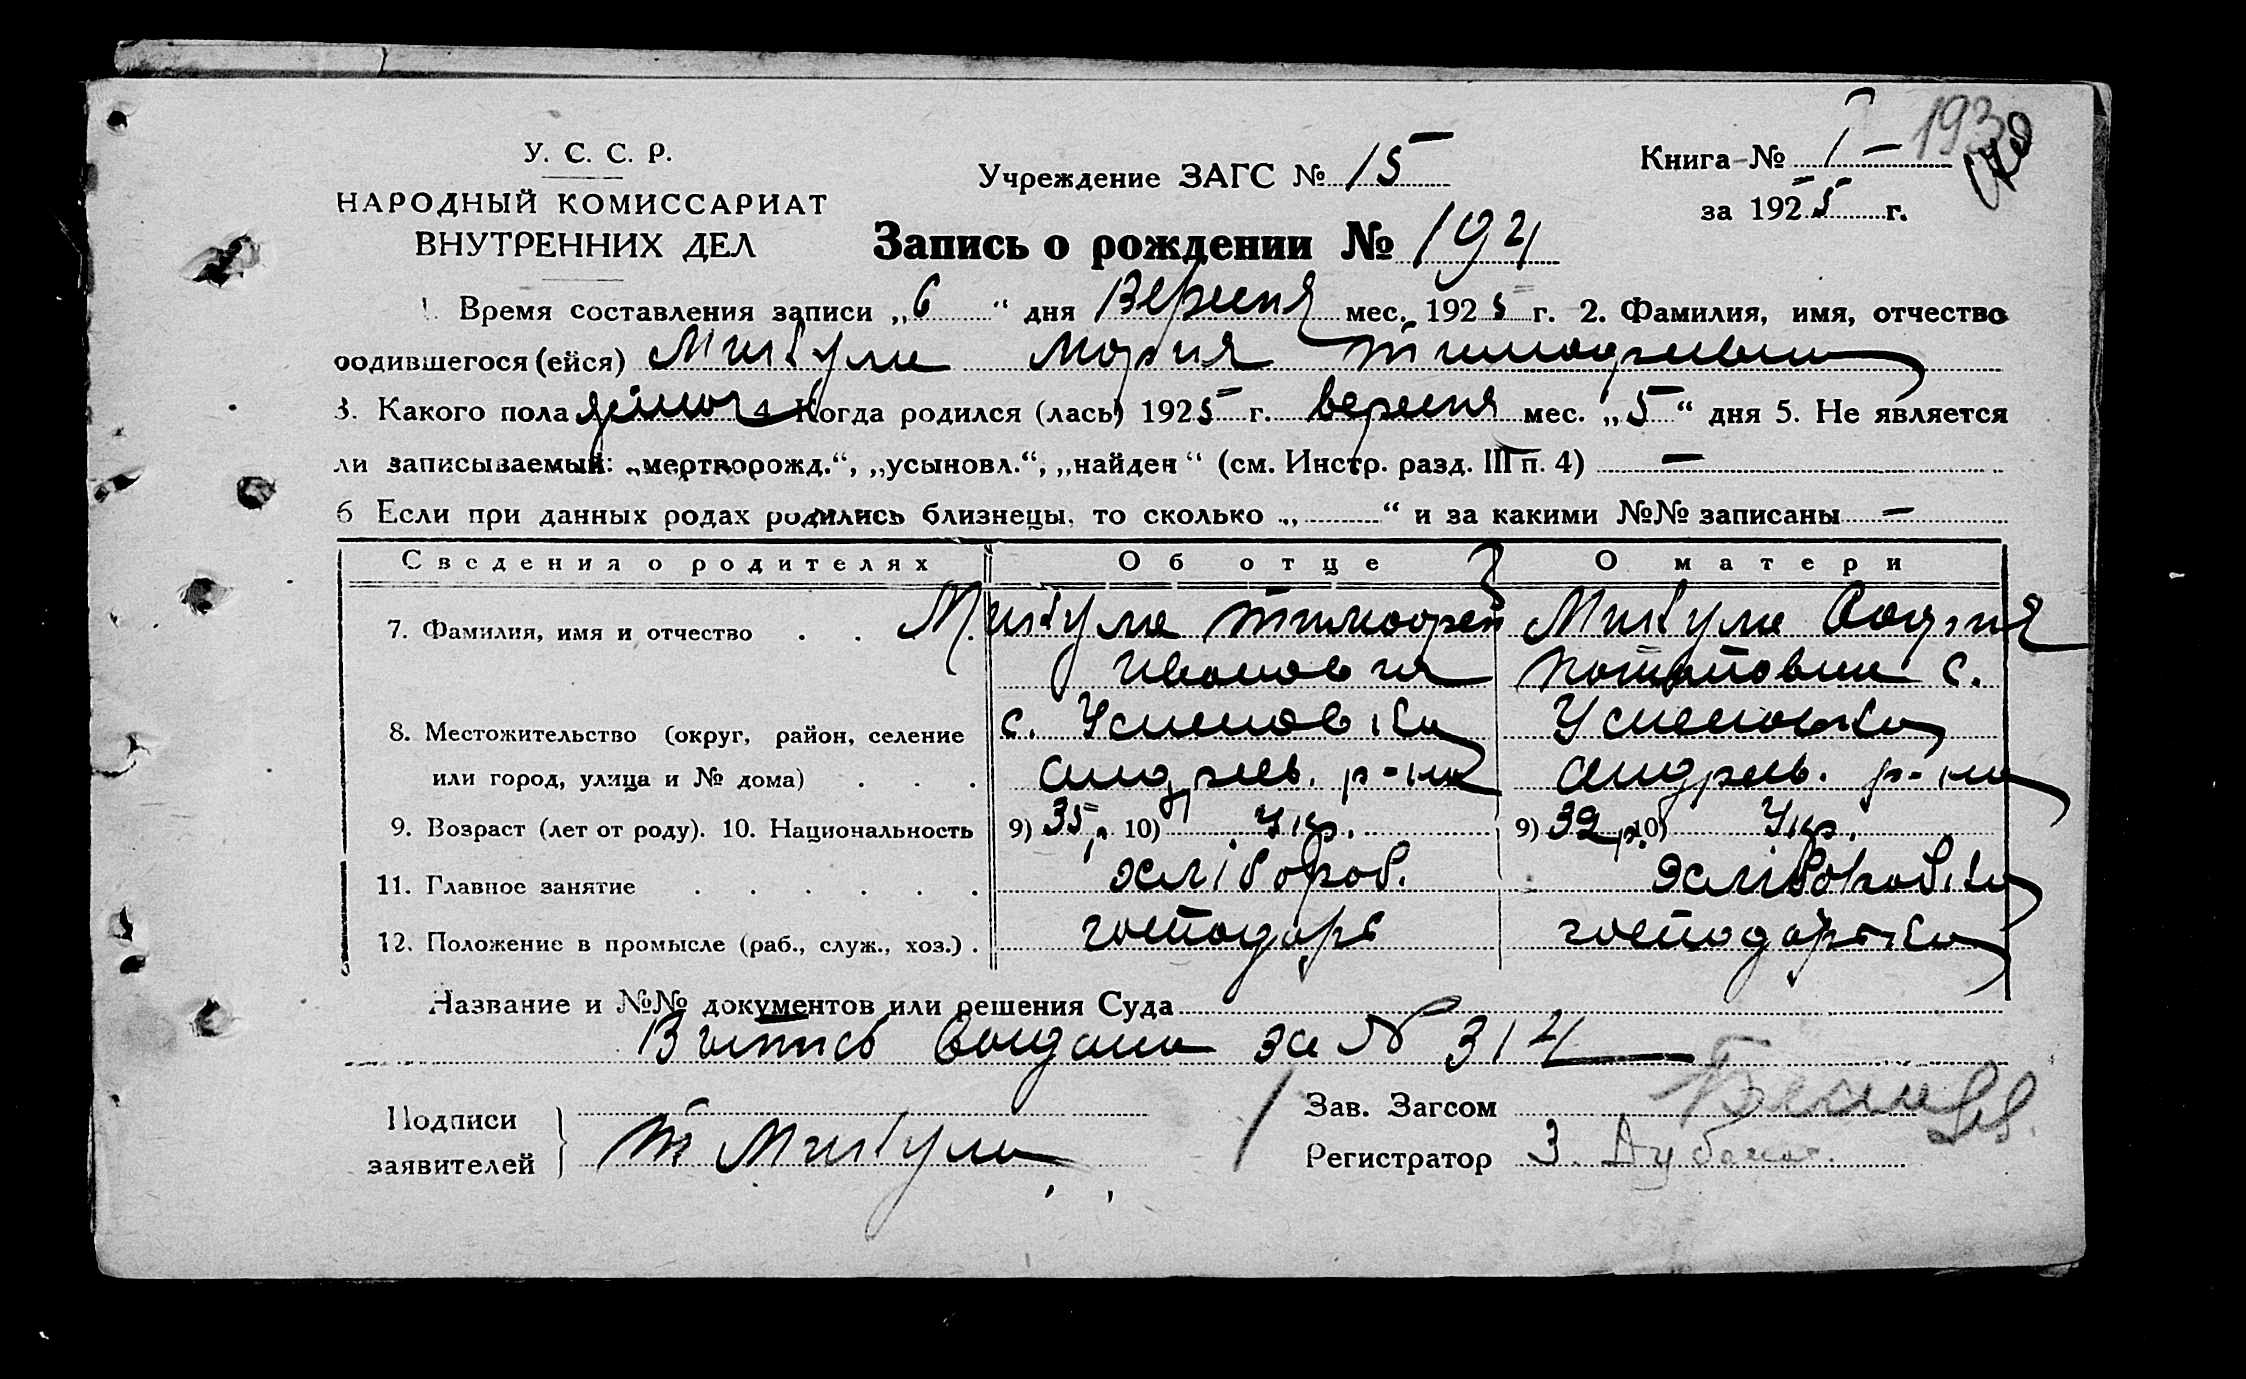 У. С. С. Р.
НАРОДНЫЙ КОМИССАРИАТ
ВНУТРЕННИХ ДЕЛ
Учреждение ЗАГС № 15
Книга № 1 – 193
за 1925 г.
Запись о рождении № 194
1. Время составления записи „6“ дня Вересня мес. 1925 г. 2. Фамилия, имя, отчество
родившегося (ейся) Микула Мария Тимофеевна
3. Какого пола жіноч 4. Когда родился (лась) 1925 г. вересня мес. „5“ дня 5. Не является
ли записываемый: „мертворожд.“, „усыновл.“, „найден“ (см. Инстр. разд. III п. 4) —
6 Если при данных родах родились близнецы, то сколько „ “ и за какими №№ записаны —
Сведения о родителях Об отце О матери
7. Фамилия, имя и отчество . . Микула Тимофей Микула
Иванович с.
8. Местожительство (округ, район, селение с. Успеновка Успеновка
или город, улица и № дома) . . . андреев. р-на андреев. р-на
9. Возраст (лет от роду). 10. Национальность 9) 35 р. 10) Укр. 9) 32 р. 10) Укр.
11. Главное занятие . . . . . . хлібороб. хліборобка
12. Положение в промысле (раб., служ., хоз.) . господарь господарька
Название и №№ документов или решения Суда
Выпись выдана за № 314
Подписи
заявителей Т Микула
Зав. Загсом
Регистратор З.